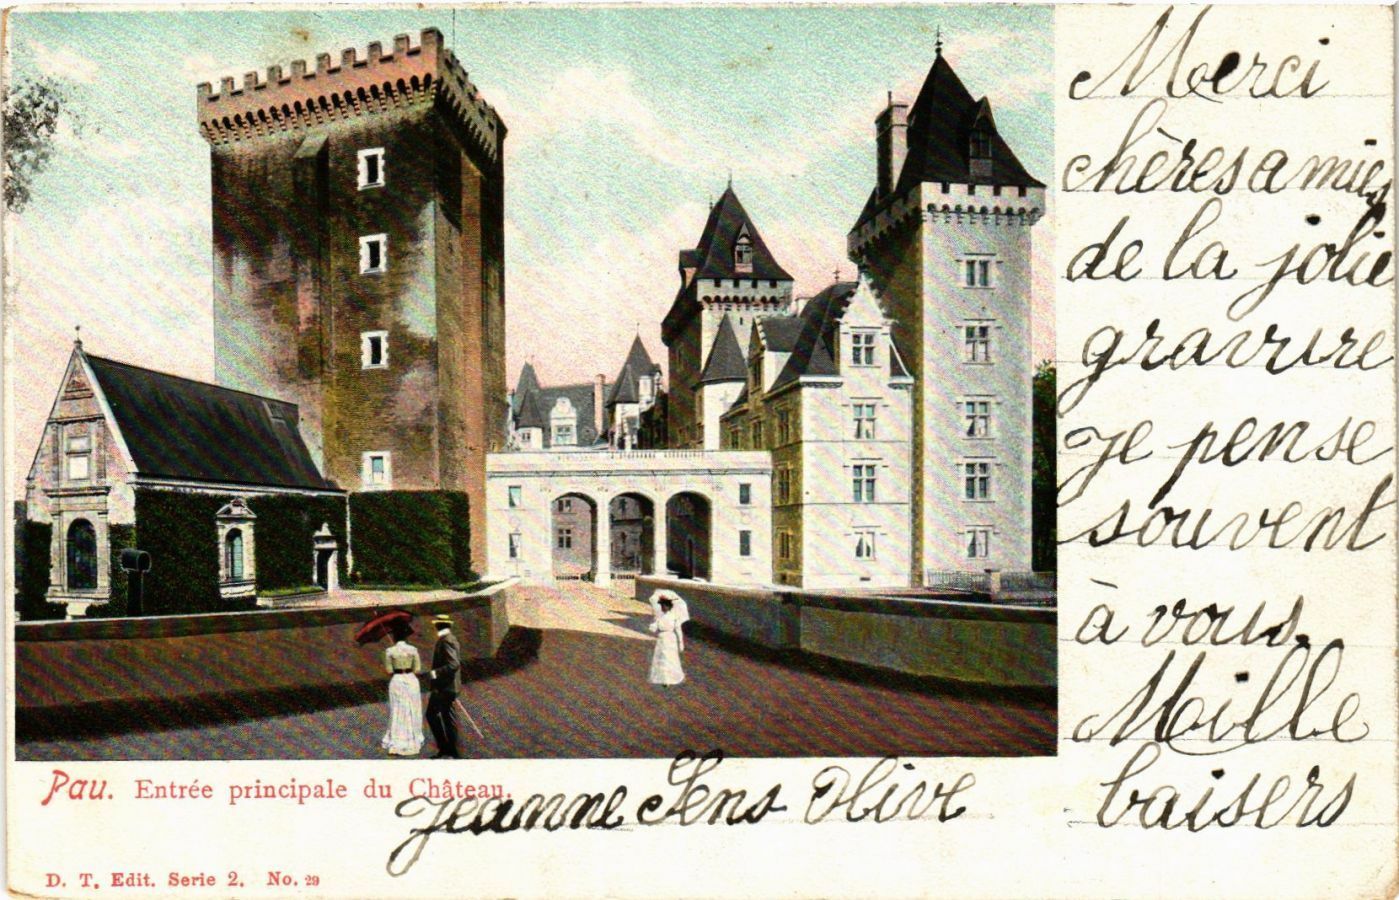 Merci
chères amies
de la jolie
gravure
je pense
souvent
à vous.
Mille
baisers
Jeanne Sens Olive
Pau. Entrée principale du Château.
D. T. Edit. Serie 2. No. 29